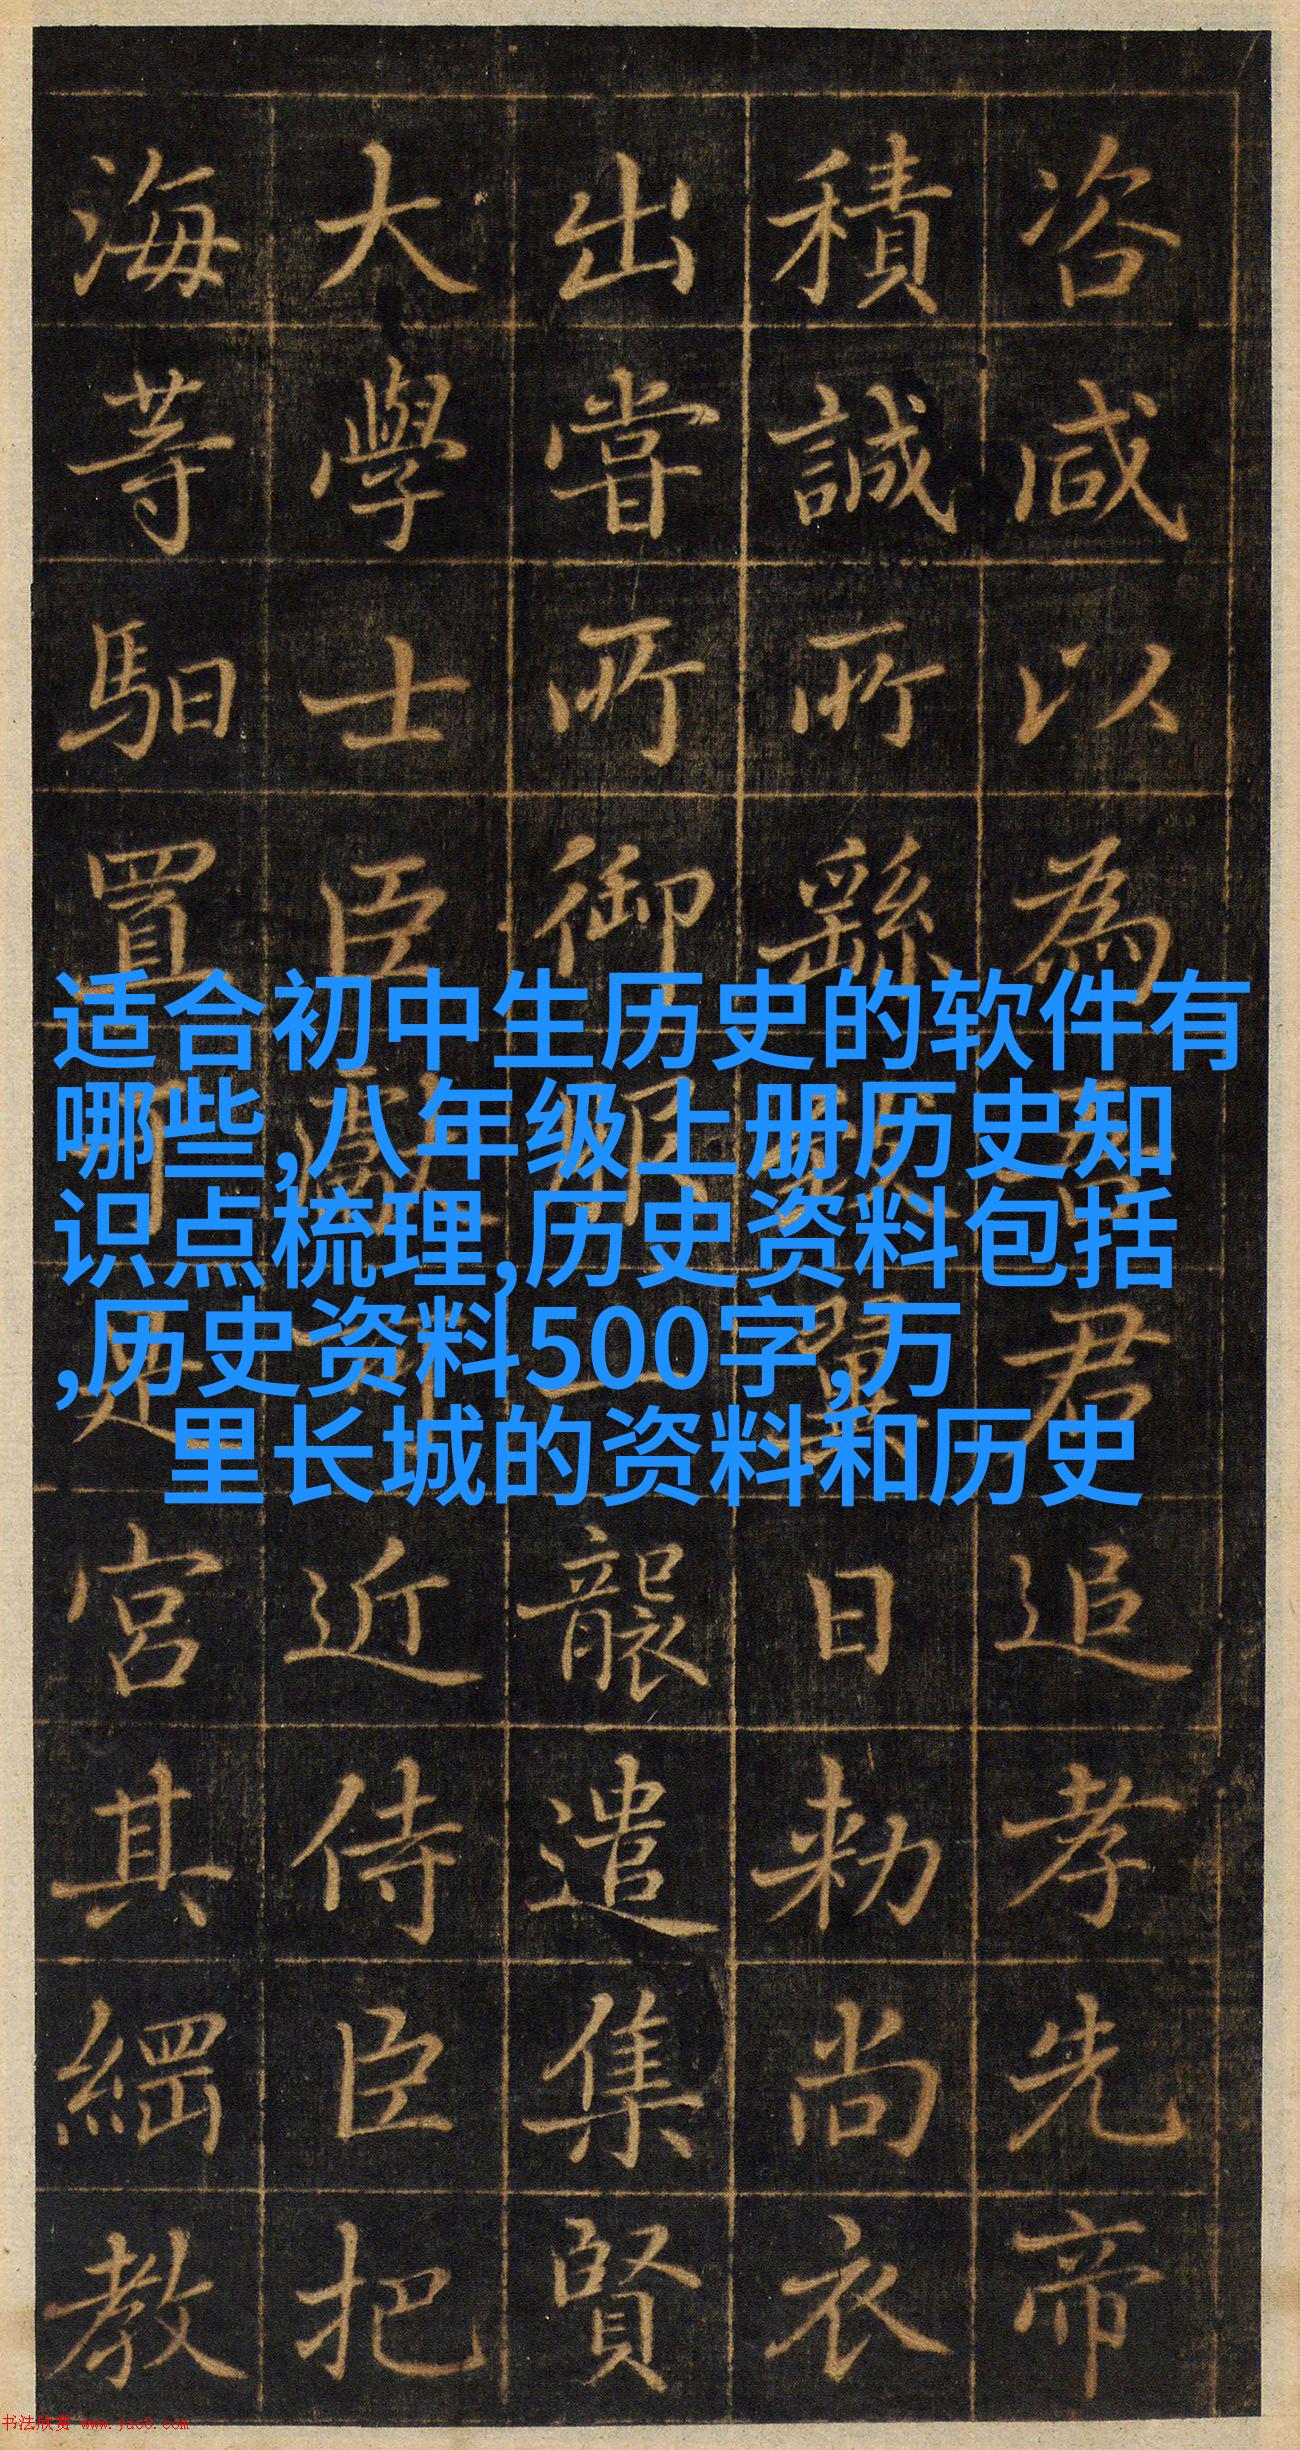 咨咸以為吾君追孝先帝
積誠所繇翼日勑尚衣
出嘗所御服一襲遣集賢
大學士臣近侍臣把
海等馹置宮其綱教
适合初中生历史的软件有
哪些,八年级上册历史知
识点梳理,历史资料包括
,历史资料500字,万
里长城的资料和历史
书法欣赏 www.yac8.com